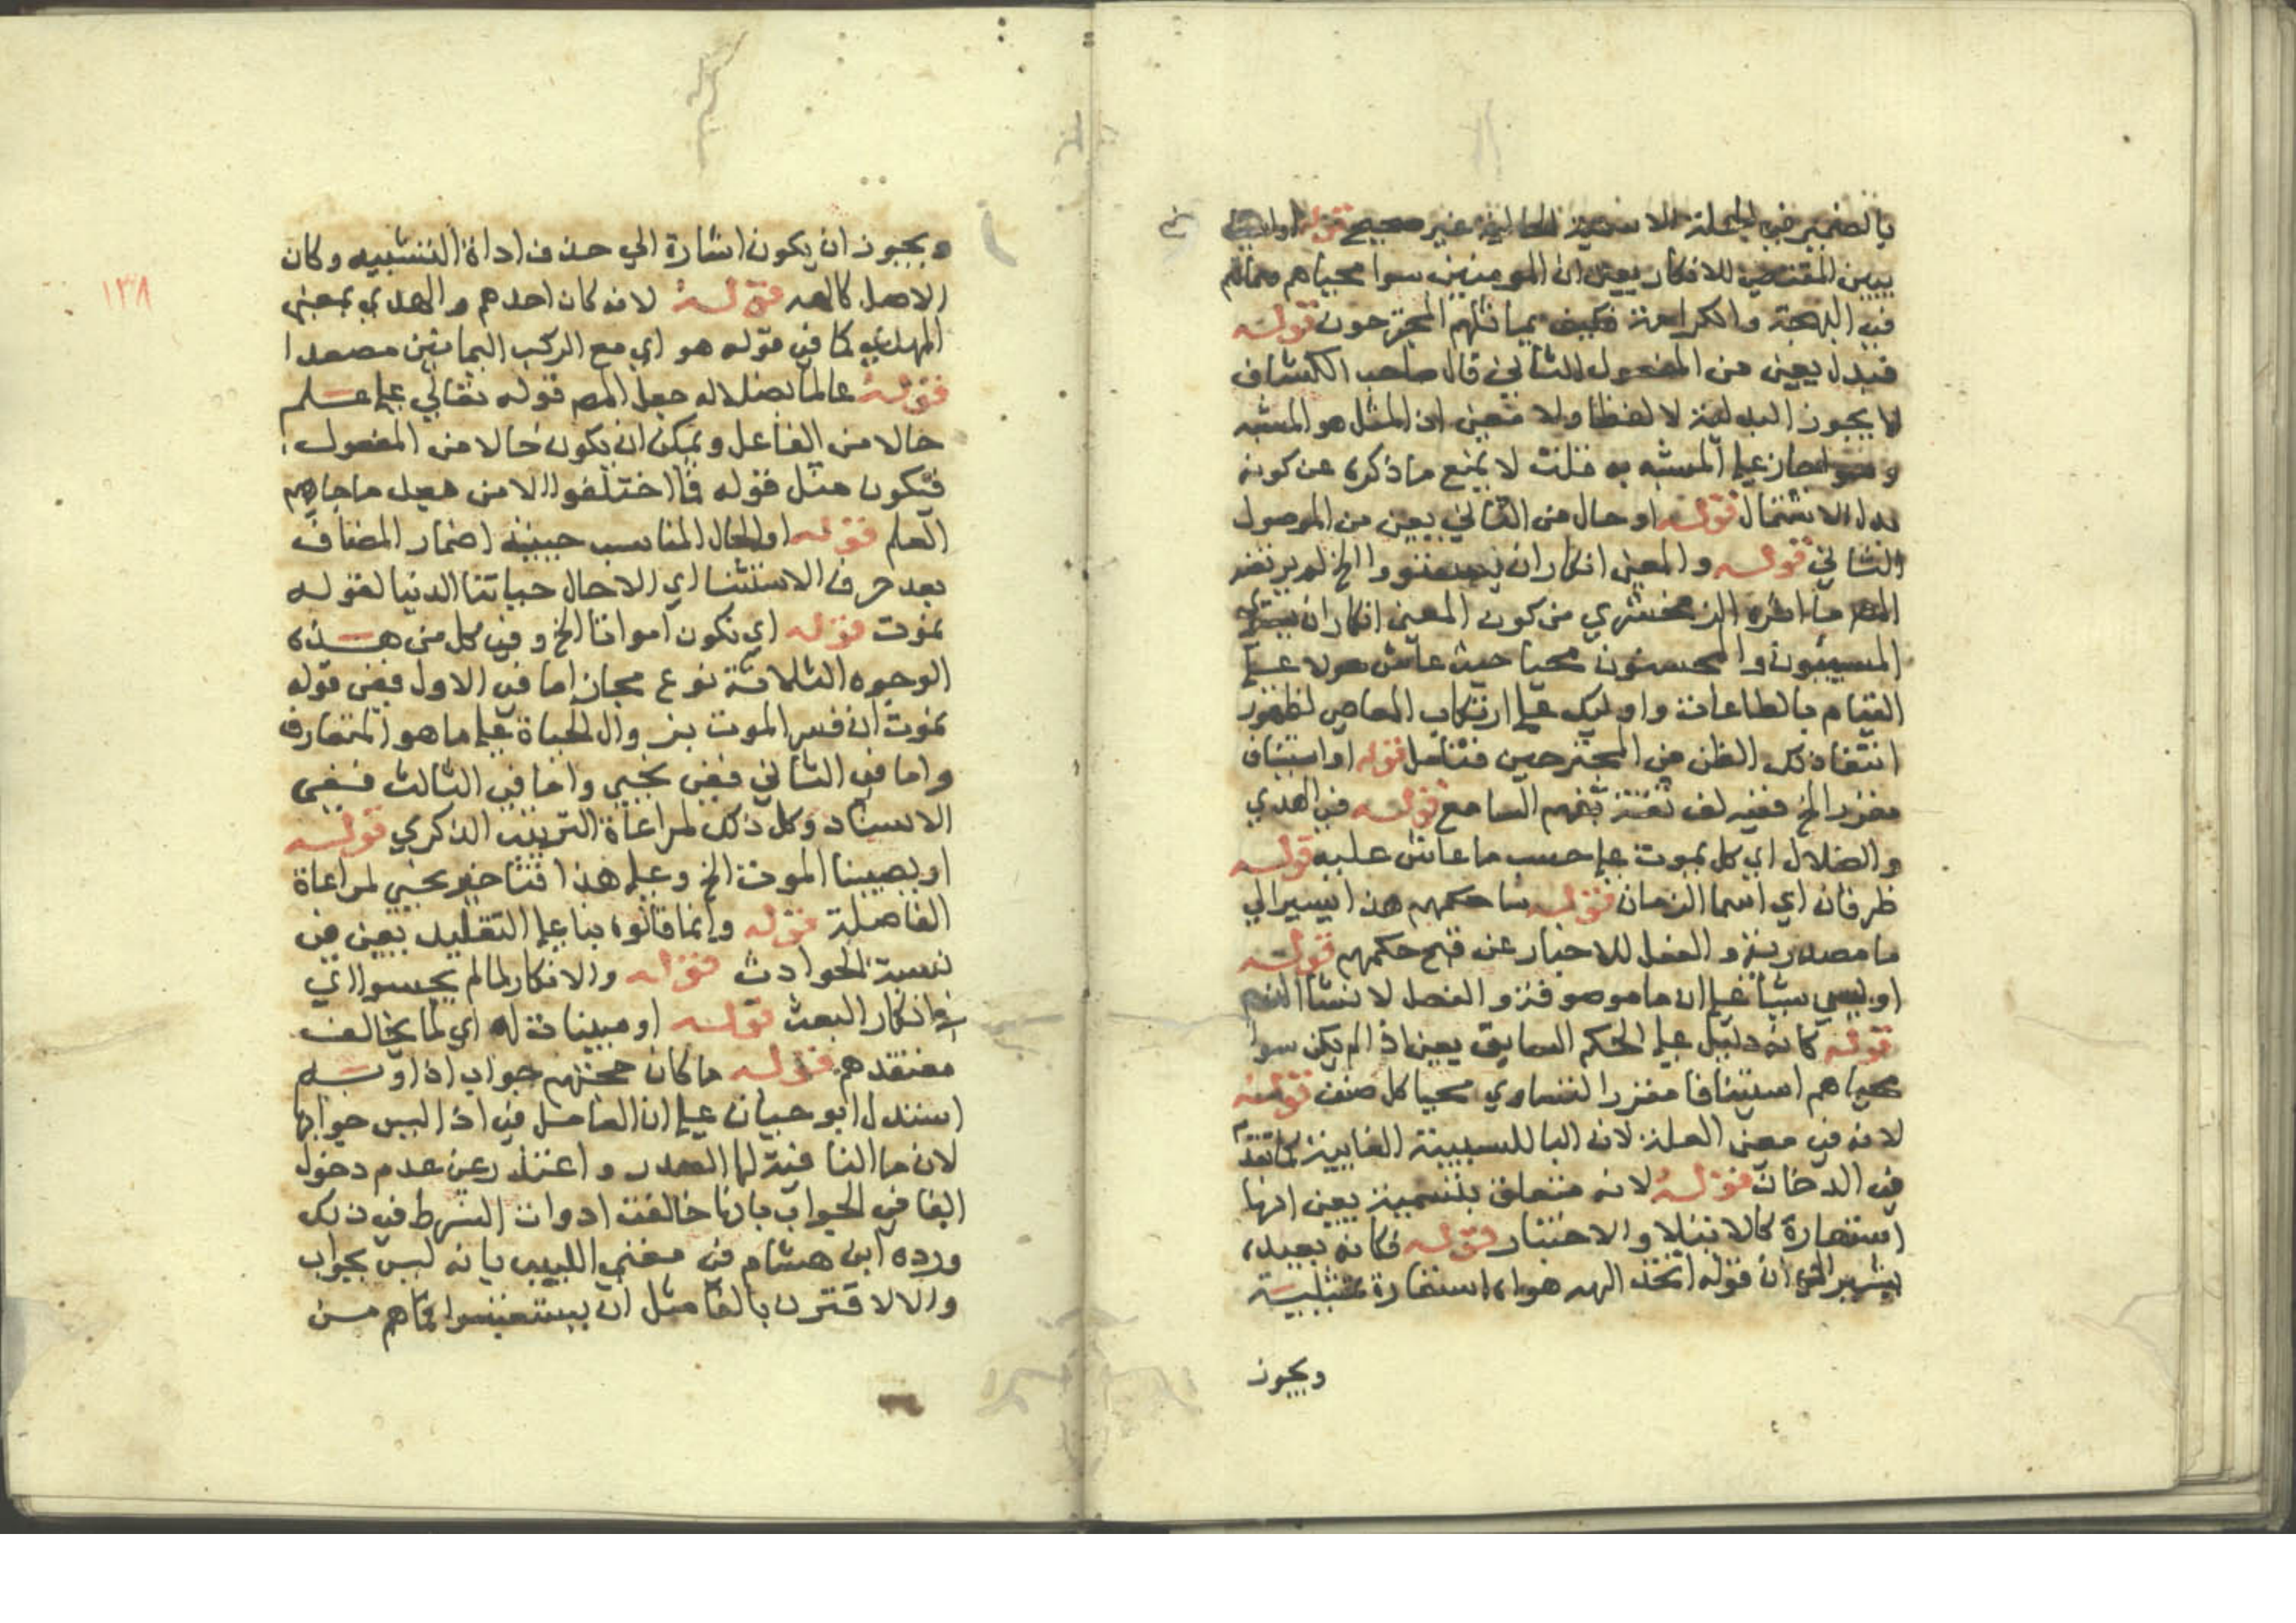 بالضمير في الجملة الاسمية الحالية غير صحيح قوله
يبين المقتضي للانكار يعني ان المومنين سوا محياهم مماتهم
في البهجة والكرامة فكيف يماثلهم المجترحون قوله
فبدل يعني من المفعول الثاني قال صاحب الكشاف
لا يجوز البدلية لا لفظا ولا معنى اذ المثل هو المشبه
المشبه به قلت لا يمنع ما ذكره عن كونه
بدل الاشتمال قوله او حال من الثاني يعني من الموصول
الثاني قوله والمعنى انكار ان يستووا الخ لم يرتض
المص ما اثره الزمخشري من كون المعنى انكار ان يستوي
المسييون والمحسنون محيا حيث عاش هولا على
القيام بالطاعات واوليك على ارتكاب المعاصي لظهور
انتفا ذلك الظن من المجترحين فتامل قوله او استيناف
مقرر الخ ففيه لف ثقة بفهم السامع قوله في الهدي
والضلال اي كل يموت على حسب ما عاش عليه قوله
ظرفان اي اسما الزمان قوله سا حكمهم هذا يشير الي
ما مصدرية والفعل للاخبار عن قبح حكمهم قوله
او بيس شيا على ان ما موصوفة والفعل لانشا الذم
قوله كانه دليل على الحكم السابق يعني اذا لم يكن سوا
محياهم استينافا مقررا لتساوي محيا كل صنف قوله
لانه في معنى العلة لان البا للسببية الغايية كما تقدم
في الدخان قوله لانه متعلق بتسمية يعني انها
استعارة كالابتلا والاختبار قوله فكانه يعبده
يشير الي ان قوله اتخذ الهه هواه استعارة تمثيلية
ويجوز
ويجوز ان يكون اشارة الي حذف اداة التشبيه وكان
الاصل كالهه قوله لانه كان احدهم والهدي بمعنى
المهدي كما في قوله هواي مع الركب اليمانين مصعدا
قوله عالما بضلاله جعل المص قوله تعالي على علم
حالا من الفاعل ويمكن ان يكون حالا من المفعول
فيكون مثل قوله فما اختلفوا الا من بعد ما جاهم
العلم قوله او الحال المناسب حينيذ اضمار المضاف
بعد حرف الاستثنا اي الا حال حياتنا الدنيا لقوله
نموت قوله اي نكون امواتا الخ وفي كل من هذه
الوجوه الثلاثة نوع مجاز اما في الاول ففي قوله
نموت ان فسر الموت بزوال الحياة على ما هو المتعارف
واما في الثاني ففي نحيي واما في الثالث ففي
الاسناد وكل ذلك لمراعاة الترتيب الذكري قوله
او يصيبنا الموت الخ وعلى هذا فتاخير نحيي لمراعاة
الفاصلة قوله وانما قالوه بنا على التقليد يعني في
نسبة الحوادث قوله والانكار لما لم يحسوا اي
في انكار البعث قوله او مبينات له اي لما يخالف
معتقدهم قوله ما كان حجتهم جواب اذا وبه
استدل ابو حيان على ان العامل في اذا ليس جوابها
لان ما النافية لها الصدر واعتذر عن عدم دخول
الفا في الجواب بانها خالفت ادوات الشرط في ذلك
ورده ابن هشام في مغني اللبيب بانه ليس بجواب
والا لاقترن بالفا مثل ان يستعتبوا فما هم من
١٣٨